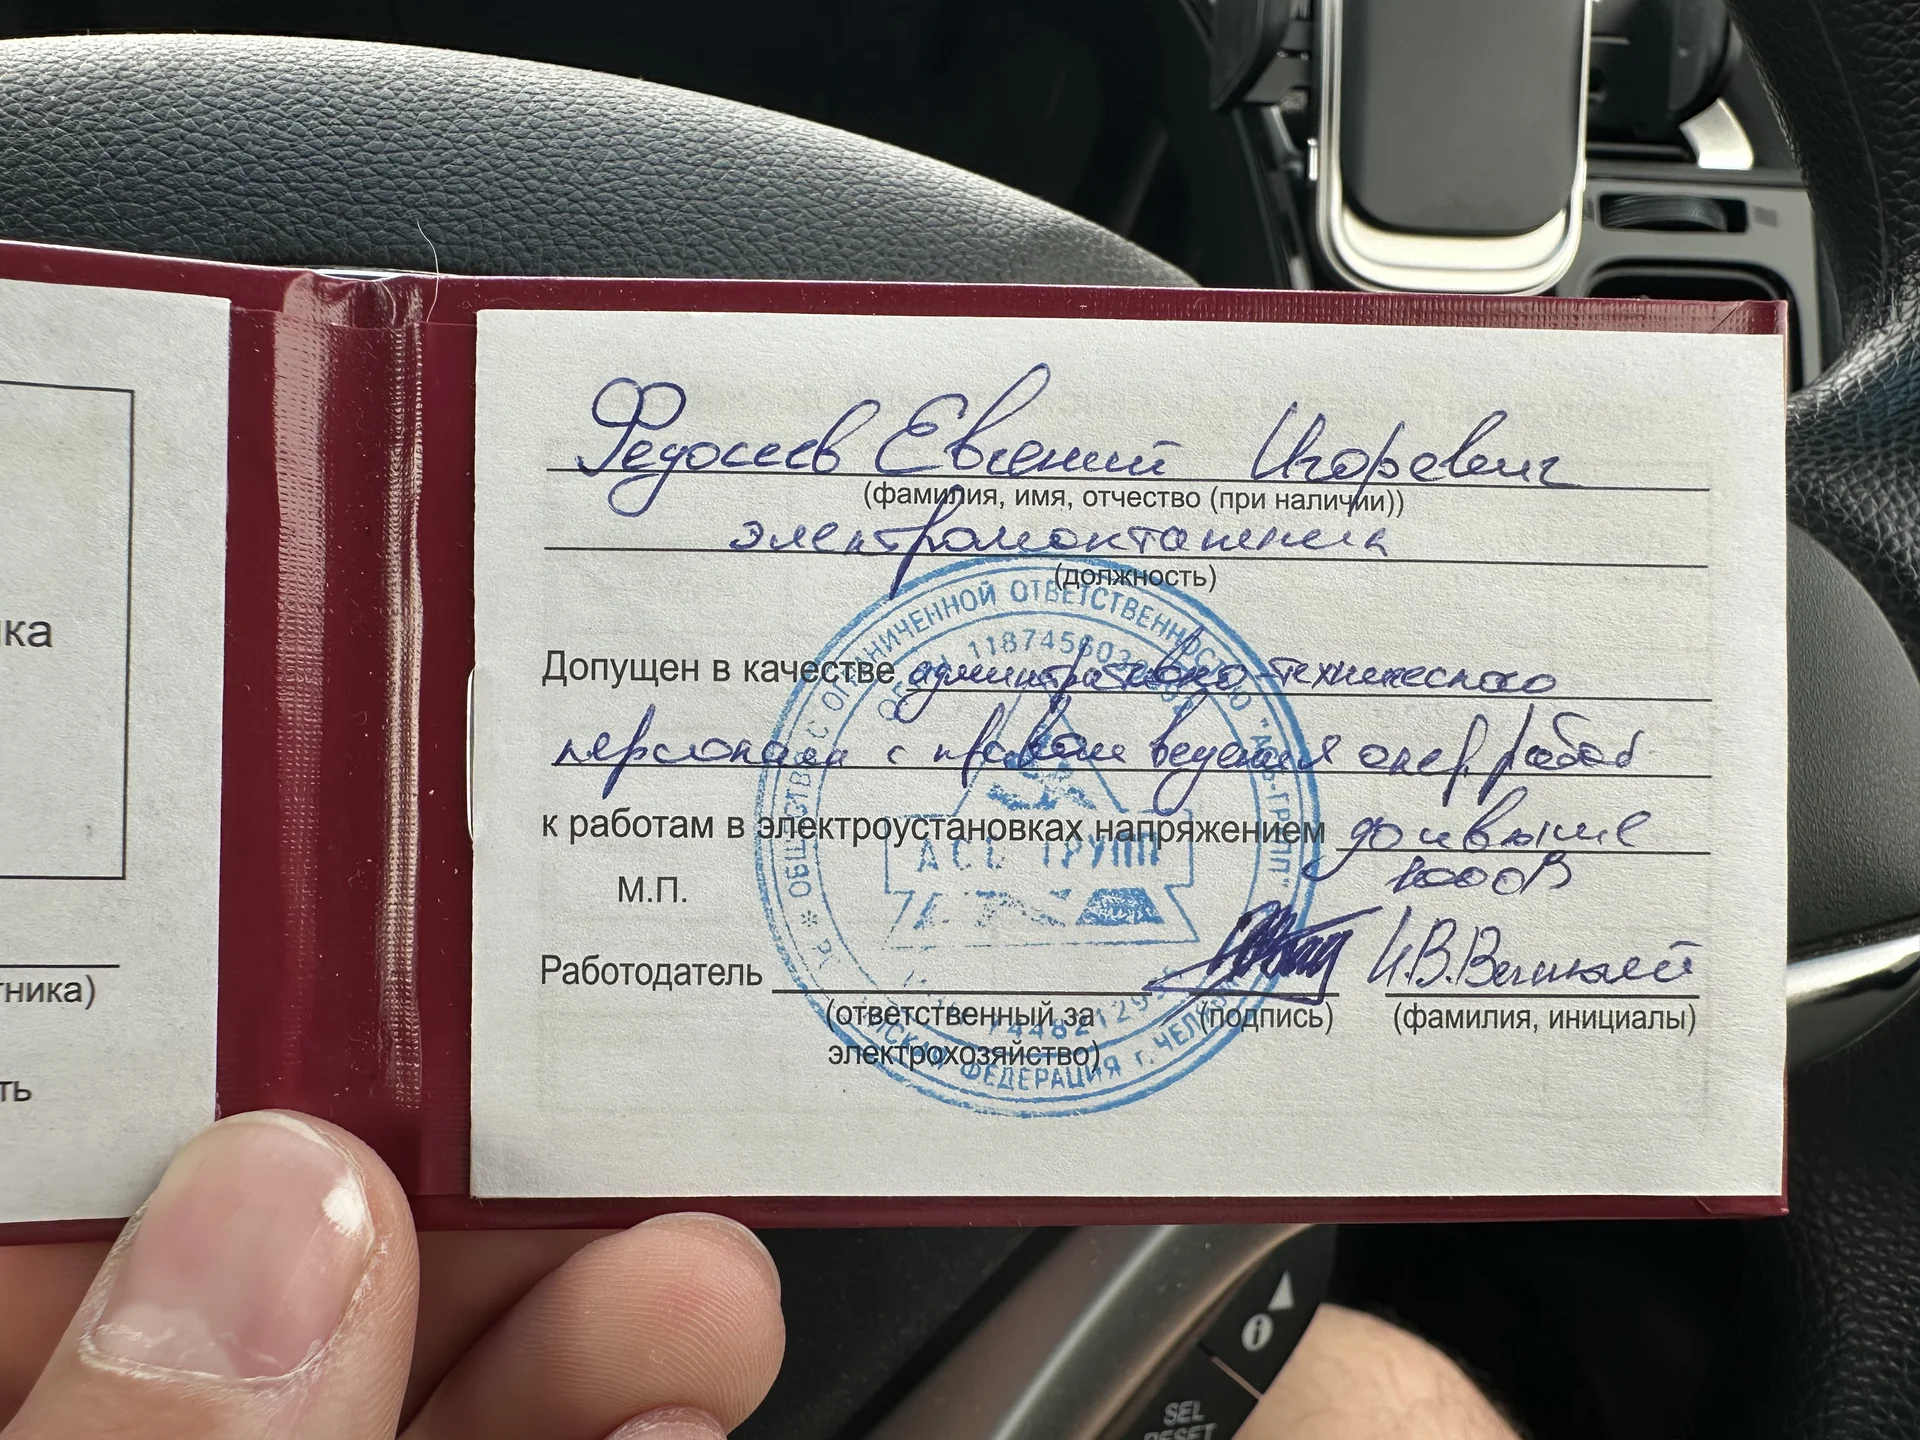 ка
тника)
ть
Федосеев Евгений Игоревич
(фамилия, имя, отчество (при наличии))
электромонтажник
(должность)
Допущен в качестве административно-технического
персонала с правом ведения опер. работ
к работам в электроустановках напряжением до и выше
1000В
М.П.
Работодатель
(ответственный за
электрохозяйство)
(подпись)
(фамилия, инициалы)
ОБЩЕСТВО С ОГРАНИЧЕННОЙ ОТВЕТСТВЕННОСТЬЮ "АСБ-ГРУПП"
РОССИЙСКАЯ ФЕДЕРАЦИЯ г. ЧЕЛЯБ
ГРУПП
SEL
RESET